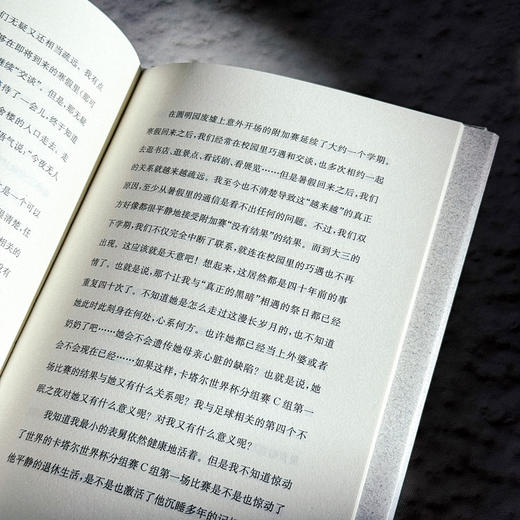 们无疑又还相当疏远。我有点
够在即将到来的寒假里(那可
继续“交谈”。但是,那无疑
待了一会儿,终于知道
舍楼的入口走去。走
语气说:“今夜无人
是一个可以
里清楚,任
相关的
没有
在圆明园废墟上意外开场的附加赛延续了大约一个学期。
寒假回来之后,我们经常在校园里巧遇和交谈,也多次相约一起
去逛书店、逛景点、看话剧、看展览……但是暑假回来之后,我们
的关系就越来越疏远。我至今也不清楚导致这“越来越”的真正
原因,至少从暑假里的通信是看不出任何的问题。不过,我们双
方好像都很平静地接受附加赛“没有结果”的结果。而到大三的
下学期,我们不仅完全中断了联系,就连在校园里的巧遇也不再
出现。这应该就是天意吧!想起来,这居然都是四十年前的事
情了。也就是说,那个让我与“真正的黑暗”相遇的祭日都已经
重复四十次了。不知道她是怎么走过这漫长岁月的,也不知道
她此时此刻身在何处,心系何方。也许她都已经当上外婆或者
奶奶了吧……她会不会遗传她母亲心脏的缺陷?也就是说,她
会不会现在已经……如果这样,卡塔尔世界杯分组赛C组第一
场比赛的结果与她又有什么关系呢?我与足球相关的第四个不
眠之夜对她又有什么意义呢?对我又有什么意义呢?
我知道我最小的表舅依然健康地活着。但是我不知道惊动
了世界的卡塔尔世界杯分组赛C组第一场比赛是不是也惊动了
他平静的退休生活,是不是也激活了他沉睡多年的记